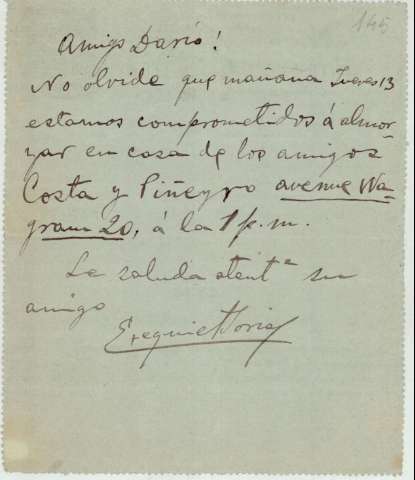 145
Amigo Darío!
No olvide que mañana Jueves 13
estamos comprometidos á almor-
zar en casa de los amigos
Costa y Piñeyro avenue Wa-
gram 20, á la 1 p. m.
Le saluda atentª su
amigo
Ezequiel Soria